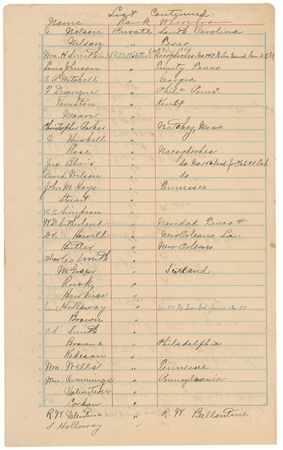 List Continued
Name Rank Where from
E Nelson Private South Carolina
Nelson " Texas
Wm. H Smith Nacogdoches
" Trinity Texas
C P Mitchell " Georgia
F Desauger " Phil Penn.
Thurston " Kenty
Moore "
Christopher Parker " Natchez Miss
C Huskell "
Rose " Nacogdoches
Jno Blair " do
David Wilson " do
John M. Hays " Tennessee
Stuart "
W K Simpson "
W.D. Sutherland " Navidad Texas
Dr. Howell " New Orleans La
Butler " New Orleans
Charles Smith "
McGregor " Scotland
Rusk "
Hawkins "
Holloway "
Brown "
Smith "
Browne " Philadelphia
Kedeson "
Wm. Wells " Tennessee
Wm. Cummings " Pennsylvania
Valentine "
Cockran "
R.W. Valentine " R. W. Ballantine
S Holloway "